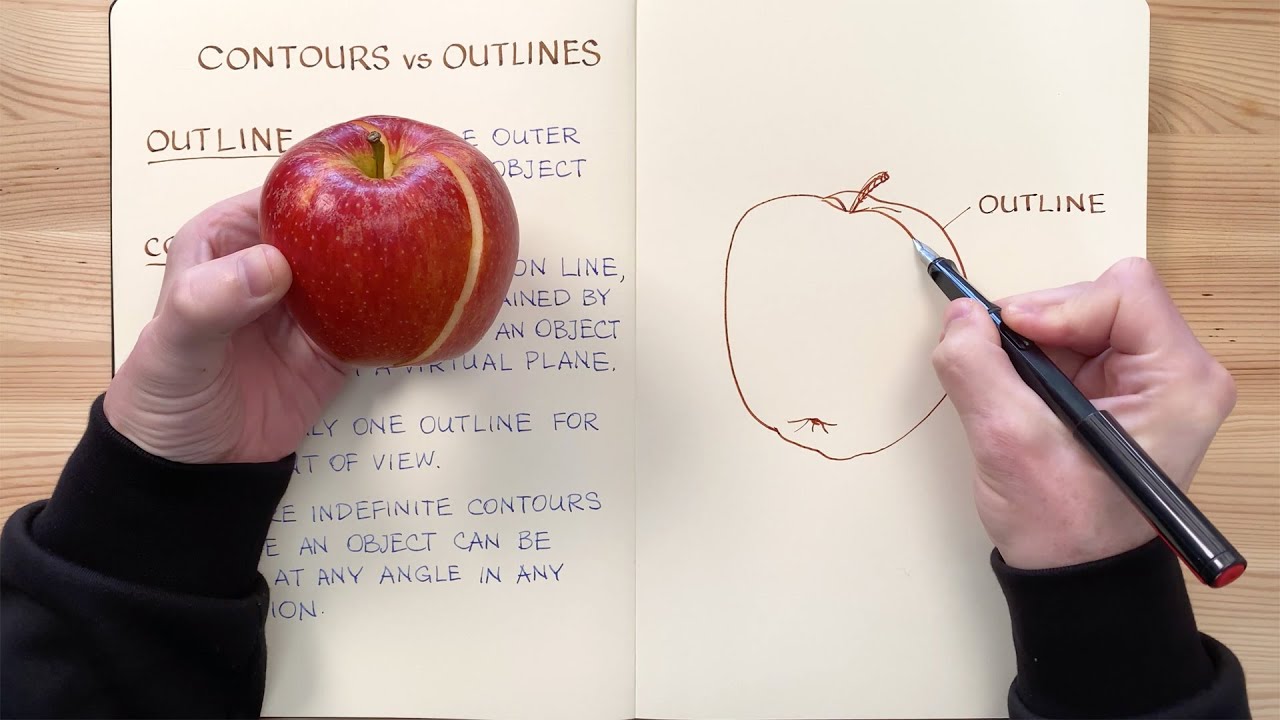 CONTOURS vs OUTLINES
OUTLINE OUTER
OBJECT
ON LINE,
BY
AN OBJECT
A VIRTUAL PLANE.
ONE OUTLINE FOR
OF VIEW.
INDEFINITE CONTOURS
AN OBJECT CAN BE
AT ANY ANGLE IN ANY
OUTLINE